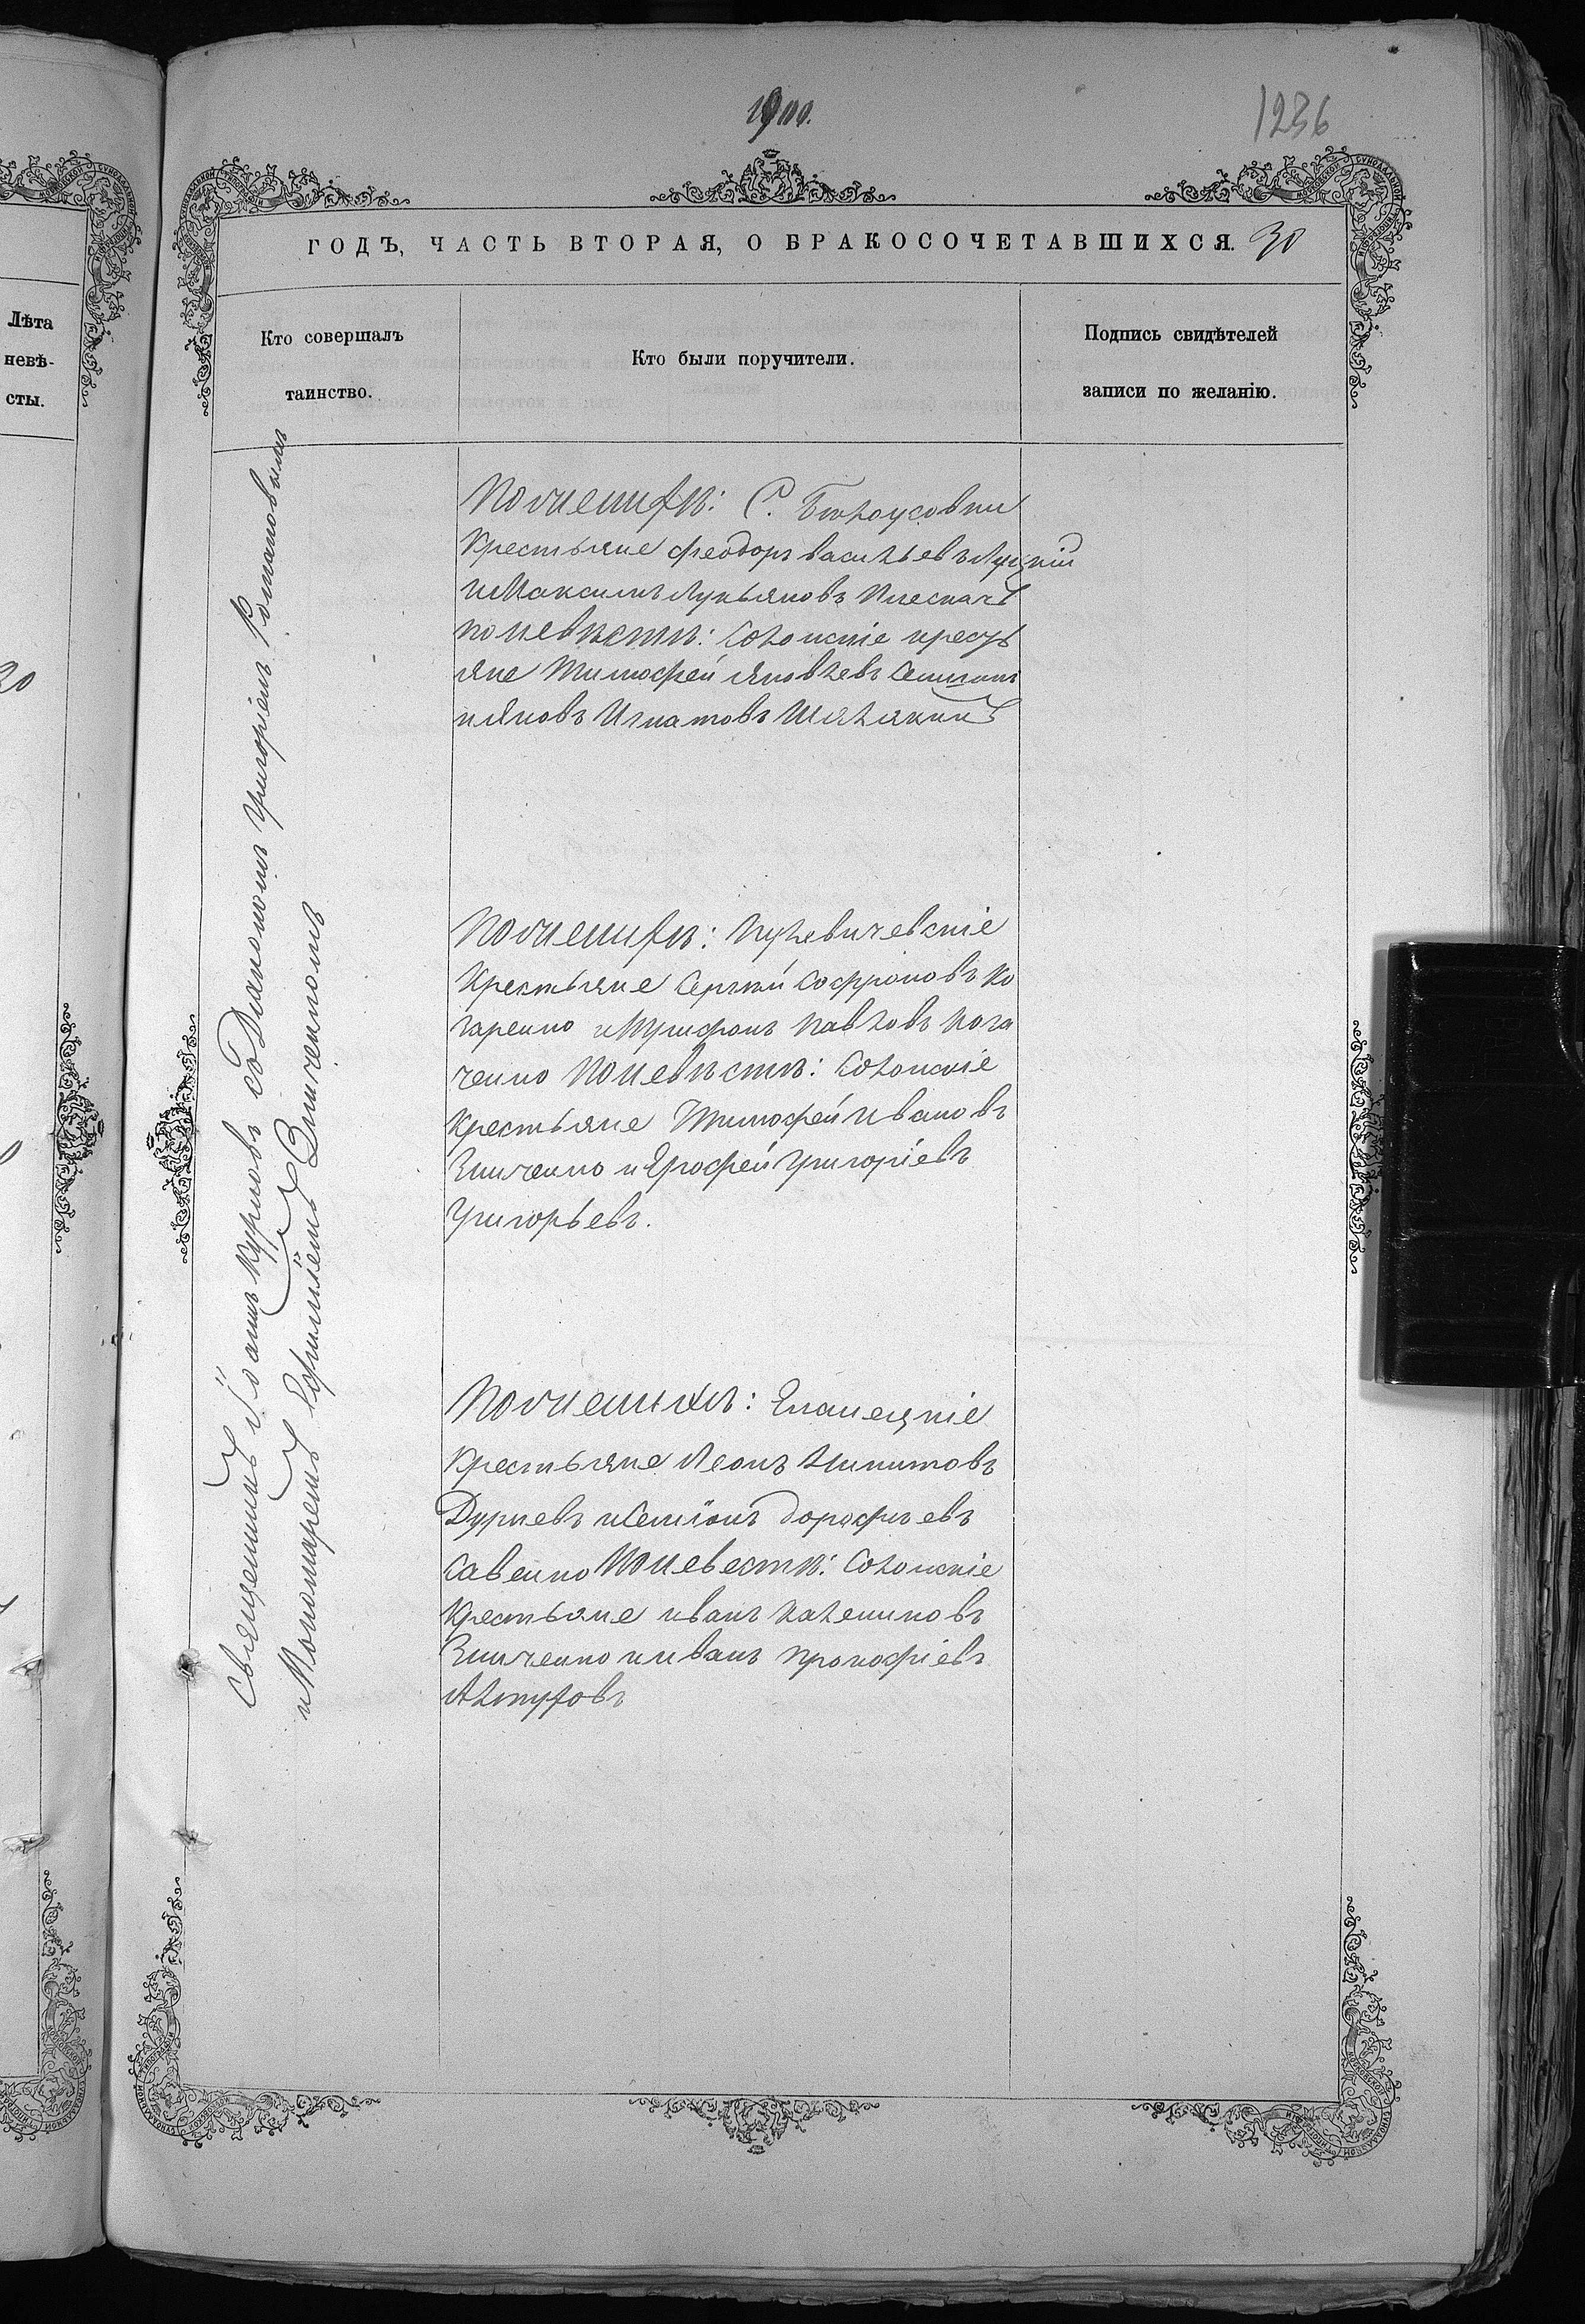 1900.
1236
ГОДЪ, ЧАСТЬ ВТОРАЯ, О БРАКОСОЧЕТАВШИХСЯ. 30
Лѣта
невѣ-
сты.
Кто совершалъ
таинство.
Кто были поручители.
Подпись свидѣтелей
записи по желанію.
Священникъ Іоаннъ Курновъ съ Діакономъ Григоріемъ Романовымъ
и Пономаремъ Ефиміемъ Зинченкомъ
По женихѣ: С. Бѣлоусовки
Крестьяне Феодоръ Васильевъ Луцкій
и Максимъ Лукьяновъ Плескачъ
по невѣстѣ: Солонскіе кресть
яне Тимофей Яковлевъ
и Яковъ Игнатовъ Шалякинъ
По женихѣ: Куцевичевскіе
Крестьяне Сергѣй Софроновъ Ко
чаренко и Трифонъ Павловъ
ченко По невѣстѣ: Солонскіе
Крестьяне Тимофей Ивановъ
Зинченко и Ерофей Григоріевъ
Григорьевъ.
По женихѣ: Еланецкіе
Крестьяне Леонъ Никитовъ
Дурневъ и Семіонъ Дорофѣевъ
Савенко По невестѣ: Солонскіе
Крестьяне Иванъ Калениковъ
Зинченко и Иванъ Прокофіевъ
20